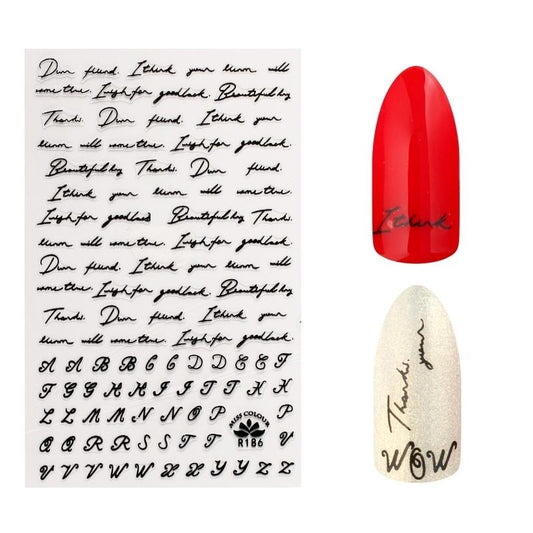 Dun fiend. I think your eunm will
some time. I wigh for goodlack. Beautiful boy
Thanks. Dun fiend. I think your
eunm will some time. I wigh for goodlack.
Beautiful boy Thanks. Dun fiend.
I think your eunm will some time.
I wigh for goodlack Beautiful boy Thanks.
eunm will some time. I wigh for goodlack.
Dun fiend. I think your eunm will
some time. I wigh for goodlack. Beautiful boy
Thanks. Dun fiend. I think your
eunm will some time. I wigh for goodlack.
A A B B C C D D E E F
F G G H H I I J J K K
L L M M N N O P P
Q Q R R S S T T V
V V V W W X X Y Y Z Z
MISS COLOUR
R186
I think
Thanks. your
WOW